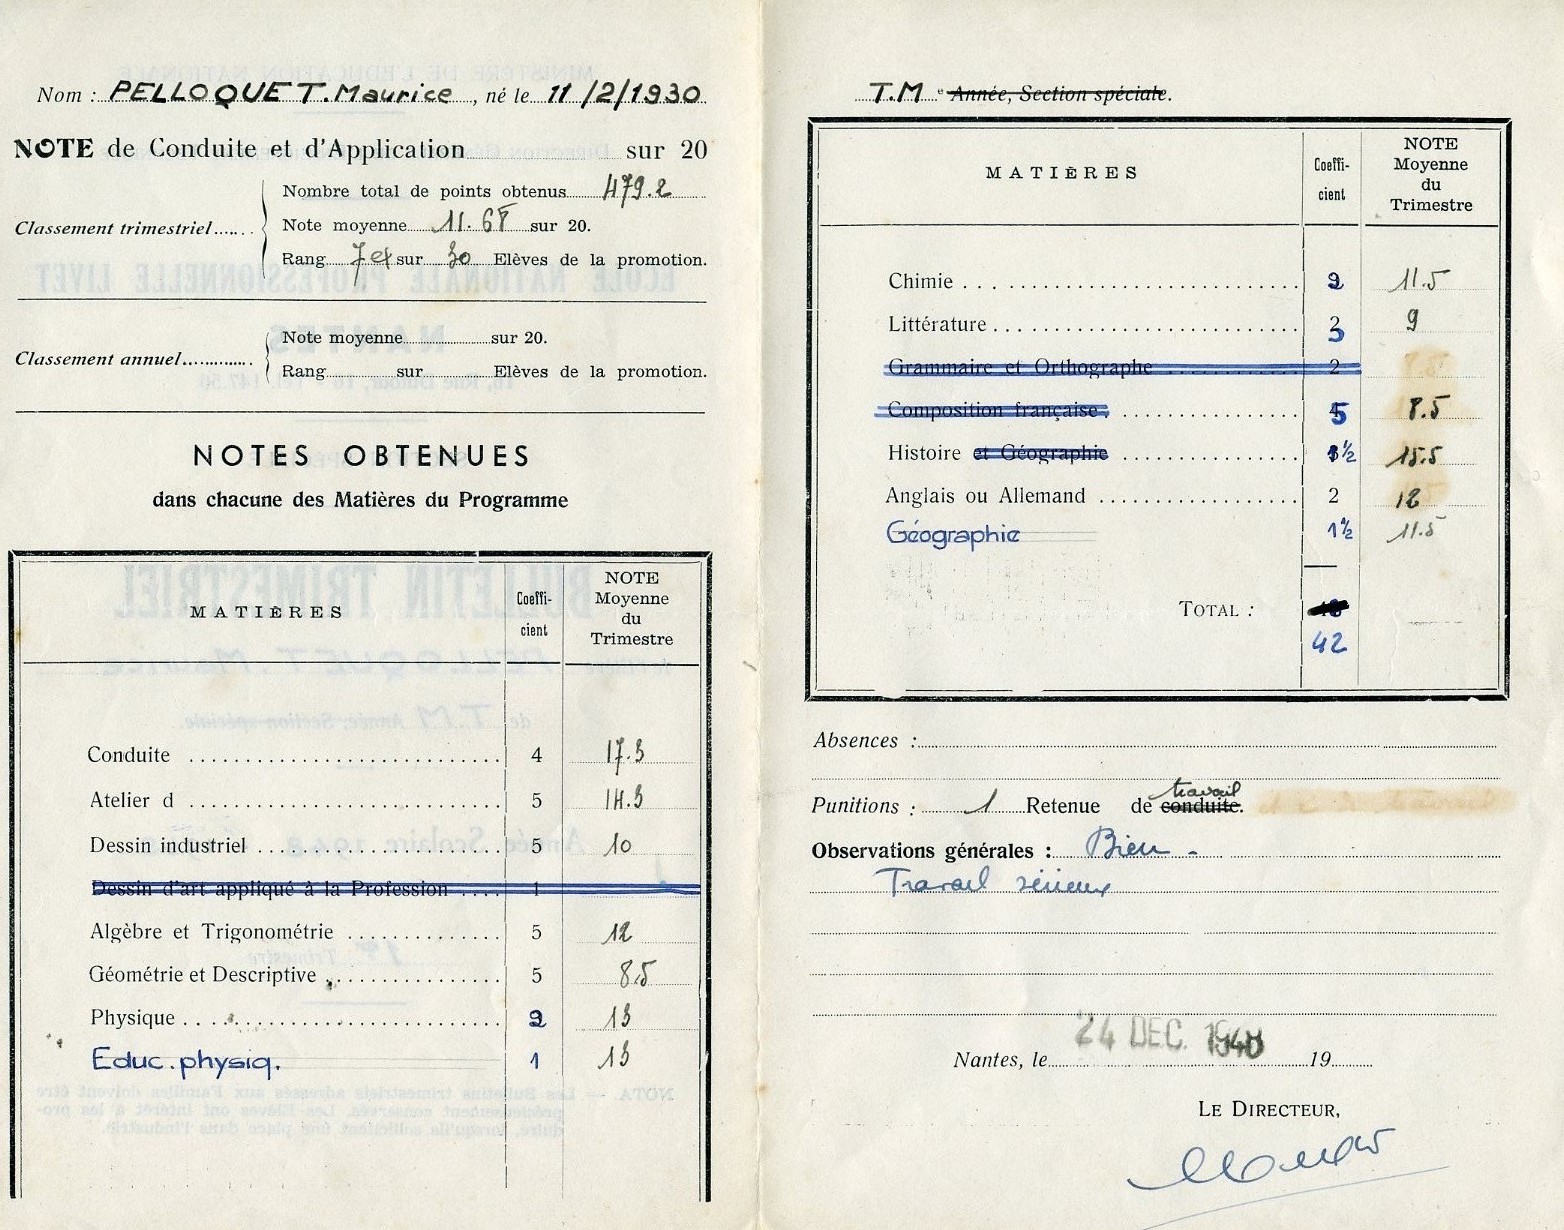 Nom : PELLOQUET. Maurice, né le 11/2/1930
NOTE de Conduite et d'Application sur 20
Classement trimestriel......
Nombre total de points obtenus 479.2
Note moyenne 11.68 sur 20.
Rang 7e sur 30 Elèves de la promotion.
Classement annuel.............
Note moyenne sur 20.
Rang sur Elèves de la promotion.
NOTES OBTENUES
dans chacune des Matières du Programme
MATIÈRES Coeffi-cient NOTE Moyenne du Trimestre
Conduite 4 17.3
Atelier d 5 14.3
Dessin industriel 5 10
Dessin d'art appliqué à la Profession 1
Algèbre et Trigonométrie 5 12
Géométrie et Descriptive 5 8.5
Physique 2 13
Educ. physiq. 1 13
T.M e Année, Section spéciale.
MATIÈRES Coeffi-cient NOTE Moyenne du Trimestre
Chimie 2 11.5
Littérature 3 9
Grammaire et Orthographe 2
Composition française 5 8.5
Histoire et Géographie 1½ 15.5
Anglais ou Allemand 2 12
Géographie 1½ 11.5
TOTAL :
42
Absences :
Punitions : 1 Retenue de conduite. travail
Observations générales : Bien -
Travail sérieux
Nantes, le 24 DEC. 1948 19
LE DIRECTEUR,